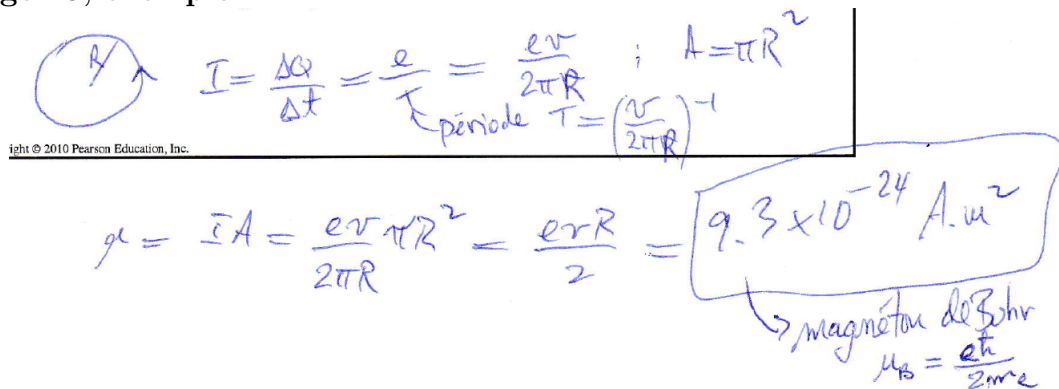 R
I = ΔQ/Δt = e/T = ev/2πR ; A = πR²
période T = (v/2πR)⁻¹
ight © 2010 Pearson Education, Inc.
μ = IA = ev/2πR πR² = evR/2 = 9.3 x 10⁻²⁴ A.m²
magnéton de Bohr
μ_B = eħ/2m_e